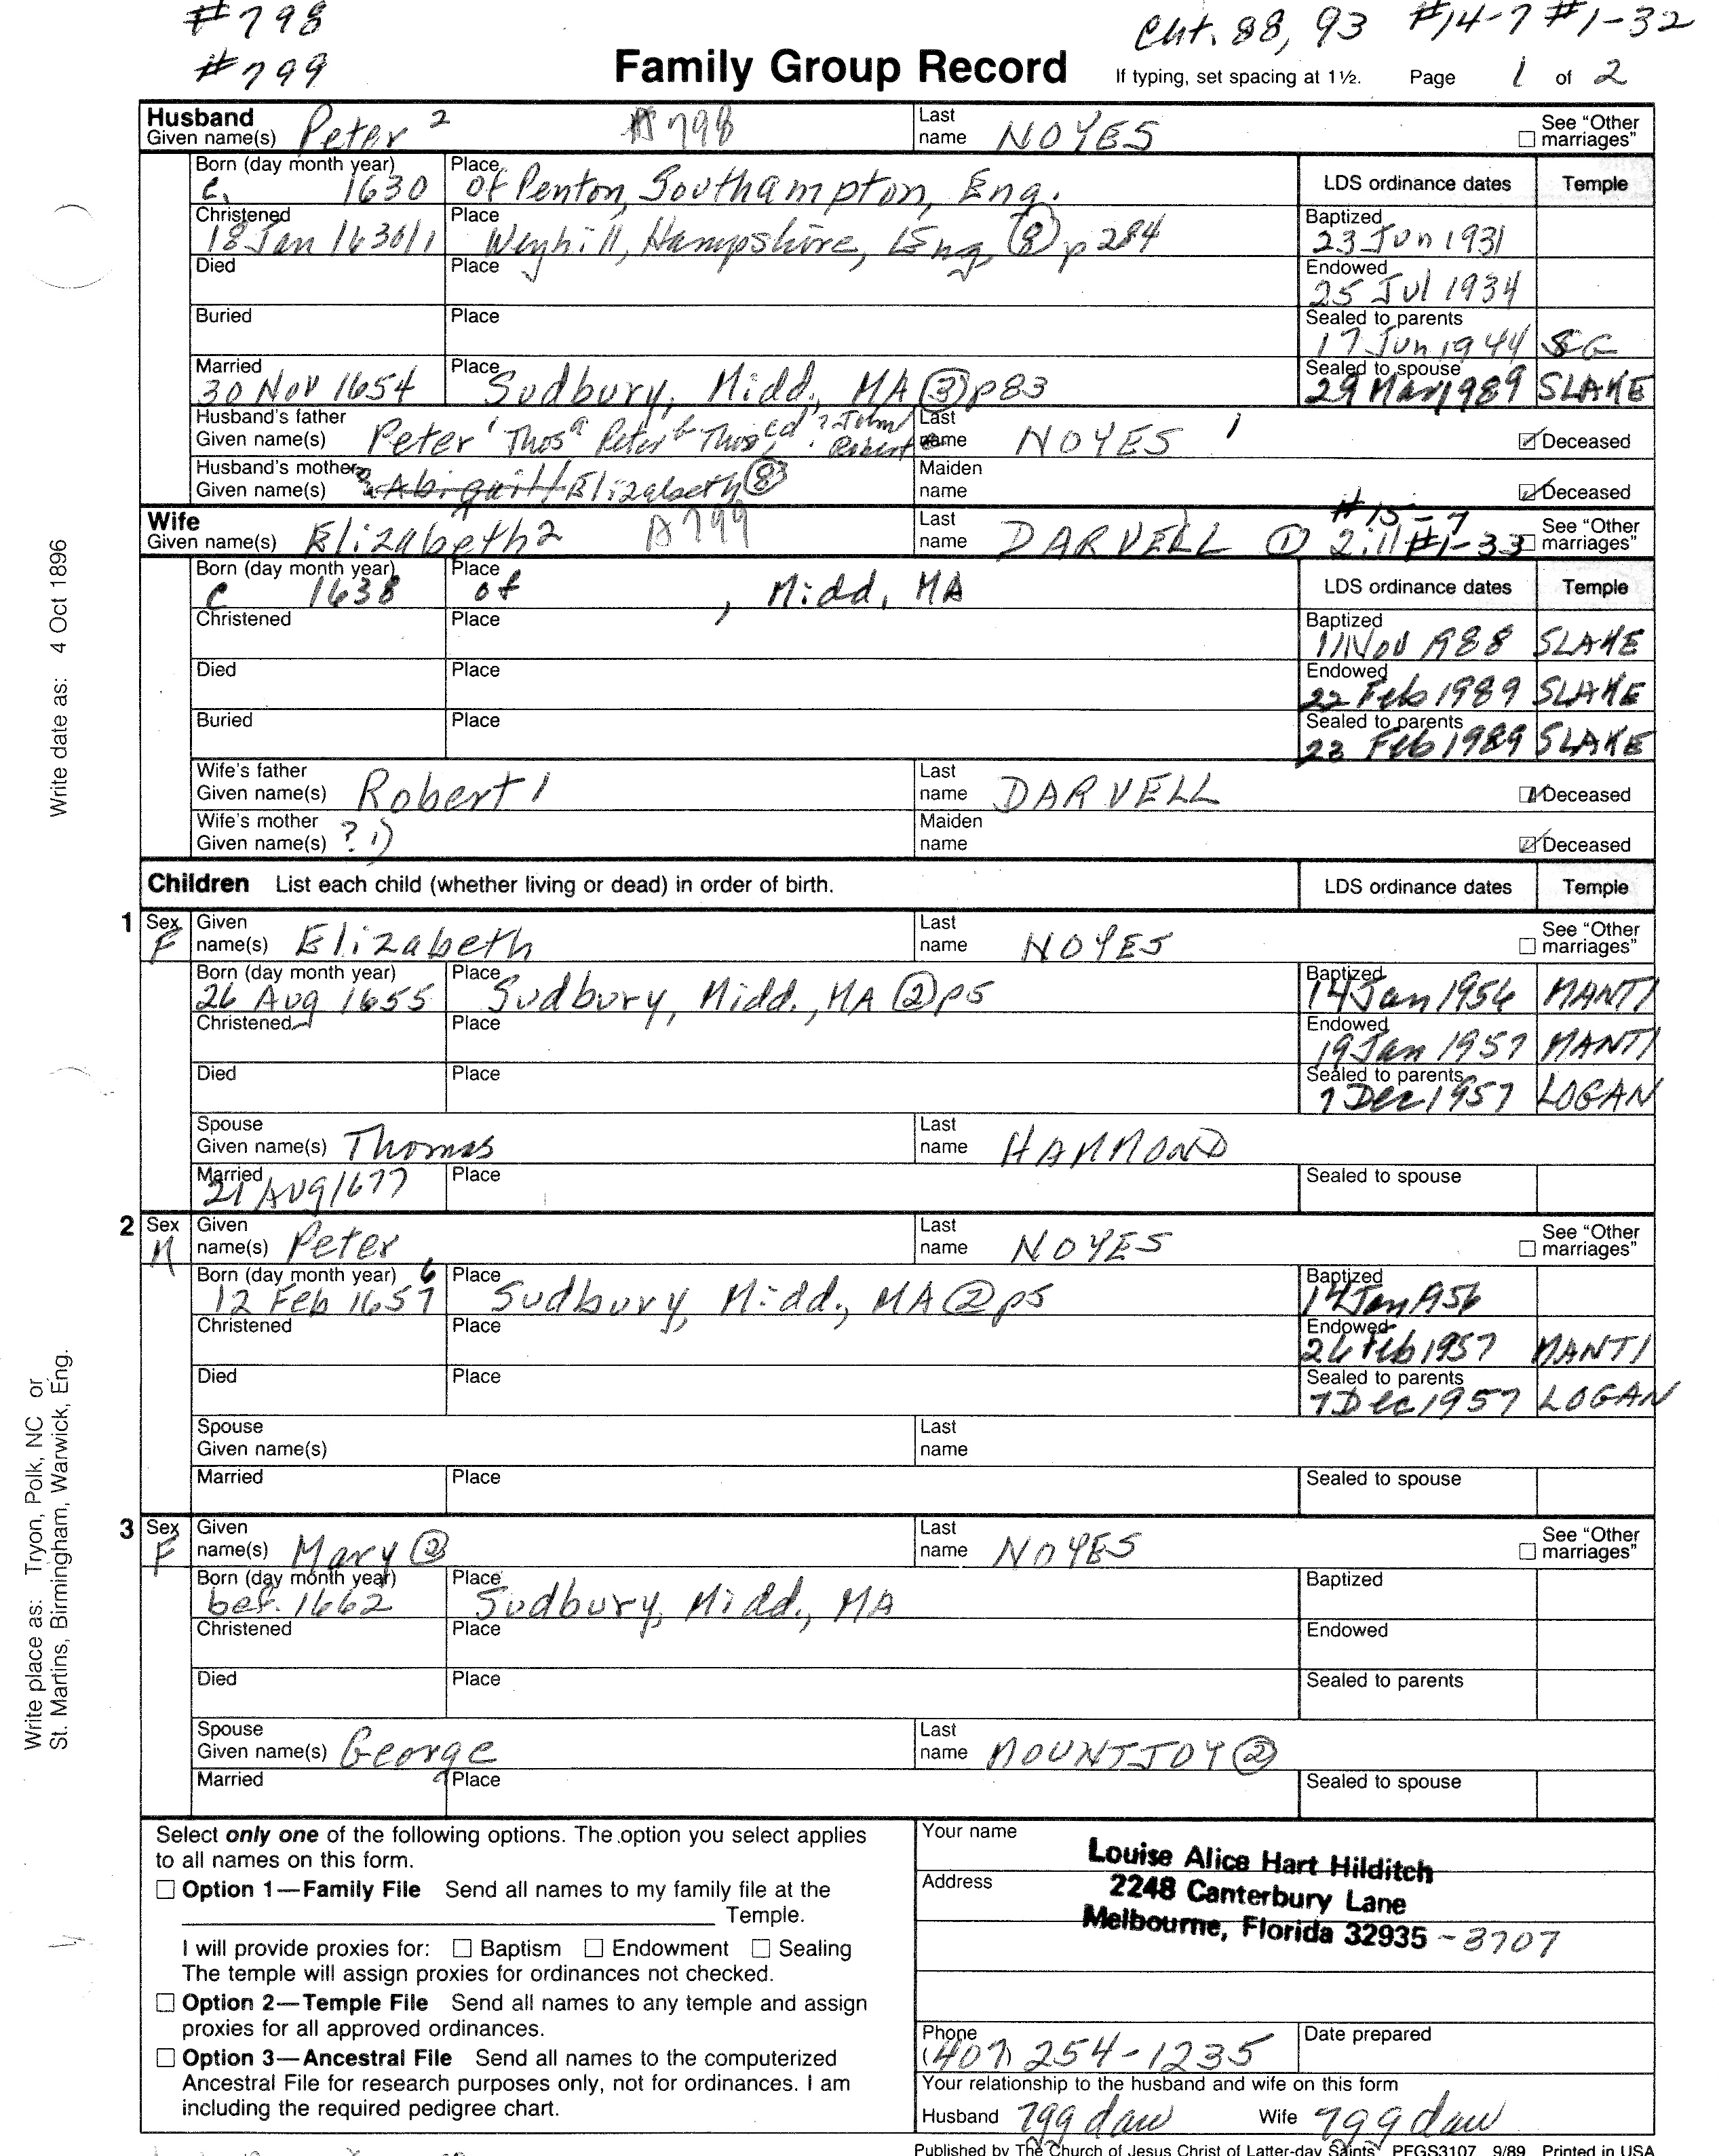 #798
Cht. 88, 93 #14-7 #1-32
#799
Family Group Record If typing, set spacing at 1½. Page 1 of 2
Husband
Given name(s) Peter 2 A798 Last name NOYES See "Other marriages"
Born (day month year) c. 1630 Place of Penton, Southampton, Eng. LDS ordinance dates Temple
Christened 18 Jan 1630/1 Place Weyhill, Hampshire, Eng (8) p 284 Baptized 23 Jun 1931
Died Place Endowed 25 Jul 1934
Buried Place Sealed to parents 17 Jun 1944 SG
Married 30 Nov 1654 Place Sudbury, Midd., MA (3) p83 Sealed to spouse 29 Mar 1989 SLAKE
Husband's father
Given name(s) Peter 1 Thos a Peter b Thos c d ? John / Robert Last name NOYES 1 Deceased
Husband's mother
Given name(s) Abigail Elizabeth (8) Maiden name Deceased
Wife
Given name(s) Elizabeth 2 A799 Last name DARVELL (1) #15-7 #1-33 See "Other marriages"
Born (day month year) c 1638 Place of , Midd, MA LDS ordinance dates Temple
Christened Place Baptized 11 Nov 1988 SLAKE
Died Place Endowed 22 Feb 1989 SLAKE
Buried Place Sealed to parents 23 Feb 1989 SLAKE
Wife's father
Given name(s) Robert 1 Last name DARVELL Deceased
Wife's mother
Given name(s) ? 1) Maiden name Deceased
Children List each child (whether living or dead) in order of birth. LDS ordinance dates Temple
1 Sex F Given name(s) Elizabeth Last name NOYES See "Other marriages"
Born (day month year) 26 Aug 1655 Place Sudbury, Midd., MA (2) p5 Baptized 14 Jan 1956 MANTI
Christened Place Endowed 19 Jan 1957 MANTI
Died Place Sealed to parents 7 Dec 1957 LOGAN
Spouse
Given name(s) Thomas Last name HAMMOND
Married 21 AUG 1677 Place Sealed to spouse
2 Sex M Given name(s) Peter Last name NOYES See "Other marriages"
Born (day month year) 12 Feb 1657 6 Place Sudbury, Midd., MA (2) p5 Baptized 14 Jan 1956
Christened Place Endowed 26 Feb 1957 MANTI
Died Place Sealed to parents 7 Dec 1957 LOGAN
Spouse
Given name(s) Last name
Married Place Sealed to spouse
3 Sex F Given name(s) Mary (2) Last name NOYES See "Other marriages"
Born (day month year) bef. 1662 Place Sudbury, Midd., MA Baptized
Christened Place Endowed
Died Place Sealed to parents
Spouse
Given name(s) George Last name MOUNTJOY (2)
Married Place Sealed to spouse
Select only one of the following options. The option you select applies
to all names on this form.
Option 1—Family File Send all names to my family file at the
Temple.
I will provide proxies for: Baptism Endowment Sealing
The temple will assign proxies for ordinances not checked.
Option 2—Temple File Send all names to any temple and assign
proxies for all approved ordinances.
Option 3—Ancestral File Send all names to the computerized
Ancestral File for research purposes only, not for ordinances. I am
including the required pedigree chart.
Your name Louise Alice Hart Hilditch
Address 2248 Canterbury Lane
Melbourne, Florida 32935 - 3707
Phone (407) 254-1235 Date prepared
Your relationship to the husband and wife on this form
Husband 7gg dau Wife 7gg dau
Published by The Church of Jesus Christ of Latter-day Saints PFGS3107 9/89 Printed in USA
Write date as: 4 Oct 1896
Write place as: Tryon, Polk, NC or
St. Martins, Birmingham, Warwick, Eng.